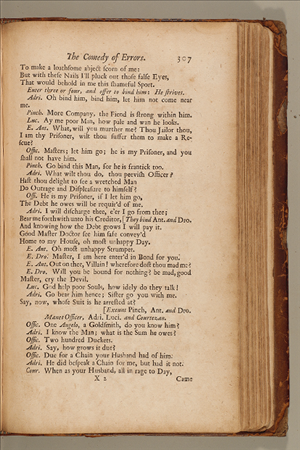 The Comedy of Errors. 307
To make a loathsome abject scorn of me:
But with these Nails I'll pluck out those false Eyes,
That would behold in me this shameful Sport.
Enter three or four, and offer to bind him: He strives.
Adri. Oh bind him, bind him, let him not come near
me.
Pinch. More Company, the Fiend is strong within him.
Luc. Ay me poor Man, how pale and wan he looks.
E. Ant. What, will you murther me? Thou Jailor thou,
I am thy Prisoner, wilt thou suffer them to make a Re-
scue?
Offic. Masters, let him go; he is my Prisoner, and you
shall not have him.
Pinch. Go bind this Man, for he is frantick too.
Adri. What wilt thou do, thou pervish Officer?
Hast thou delight to see a wretched Man
Do Outrage and Displeasure to himself?
Offi. He is my Prisoner, if I let him go,
The Debt he owes will be requir'd of me.
Adri. I will discharge thee, e'er I go from thee;
Bear me forthwith unto his Creditor, [They bind Ant. and Dro.
And knowing how the Debt grows I will pay it.
Good Master Doctor see him safe convey'd
Home to my House, oh most unhappy Day.
E. Ant. Oh most unhappy Strumpet.
E. Dro. Master, I am here enter'd in Bond for you.
E. Ant. Out on thee, Villain! wherefore dost thou mad me?
E. Dro. Will you be bound for nothing? be mad, good
Master, cry the Devil.
Luc. God help poor Souls, how idely do they talk!
Adri. Go bear him hence; Sister go you with me.
Say, now, whose Suit is he arrested at?
[Exeunt Pinch, Ant. and Dro.
Manet Officer, Adri. Luci. and Courtezan.
Offic. One Angelo, a Goldsmith, do you know him?
Adri. I know the Man; what is the Sum he owes?
Offic. Two hundred Duckets.
Adri. Say, how grows it due?
Offic. Due for a Chain your Husband had of him.
Adri. He did bespeak a Chain for me, but had it not.
Cour. When as your Husband, all in rage to Day,
X 2 Came